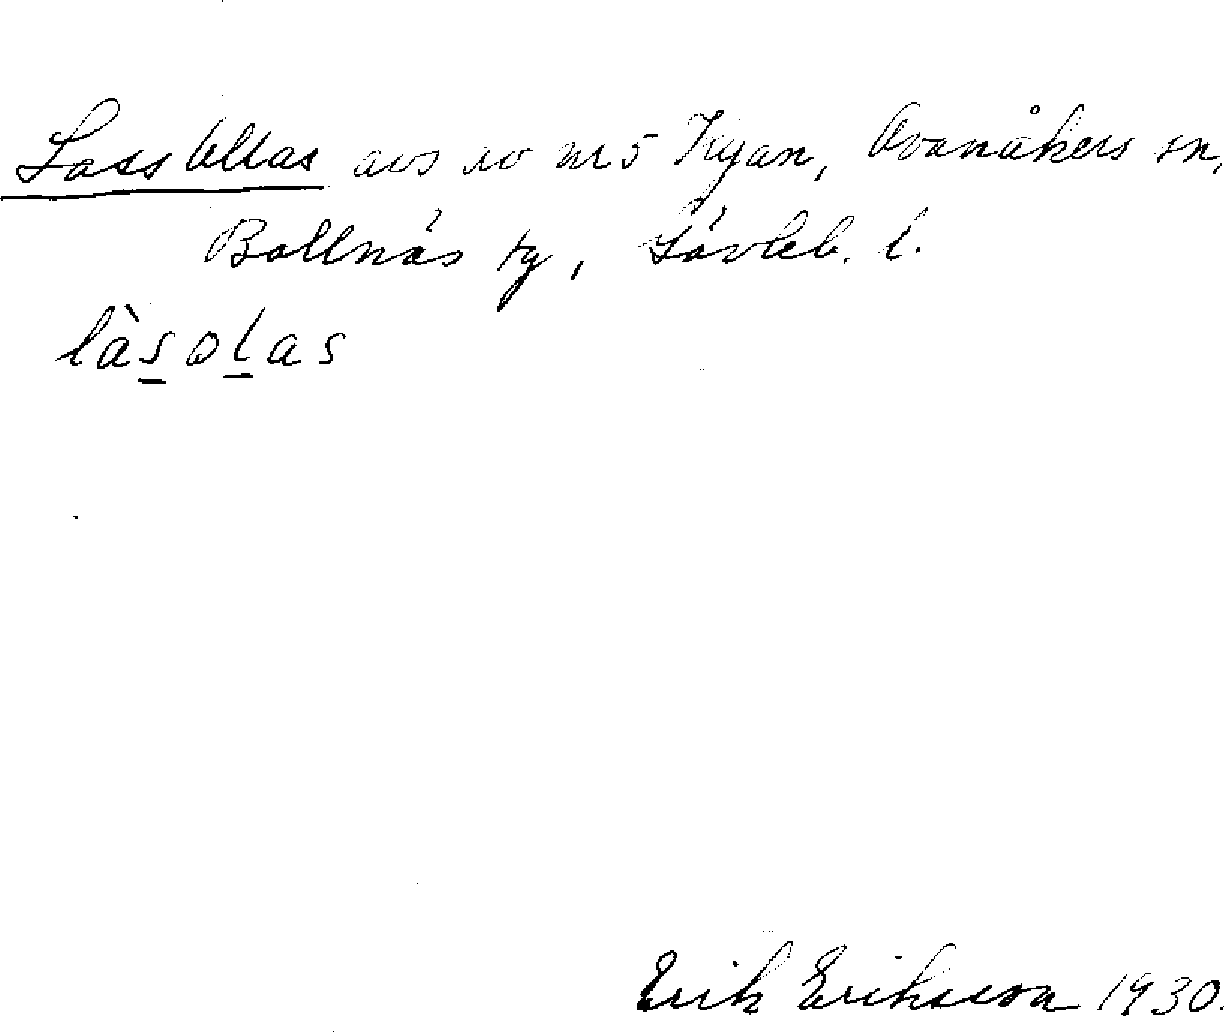 Lass Ollas avs av nr 5 Kyan, Ovanåkers sn,
Bollnäs tg, Gävleb. l.
làsolas
Erik Eriksson 1930.